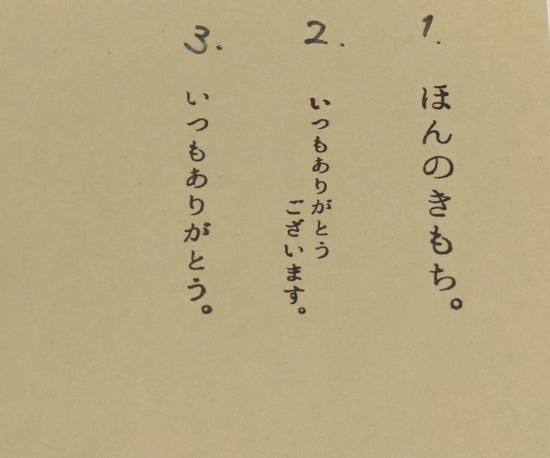 1.
ほんのきもち。
2.
いつもありがとう
ございます。
3.
いつもありがとう。